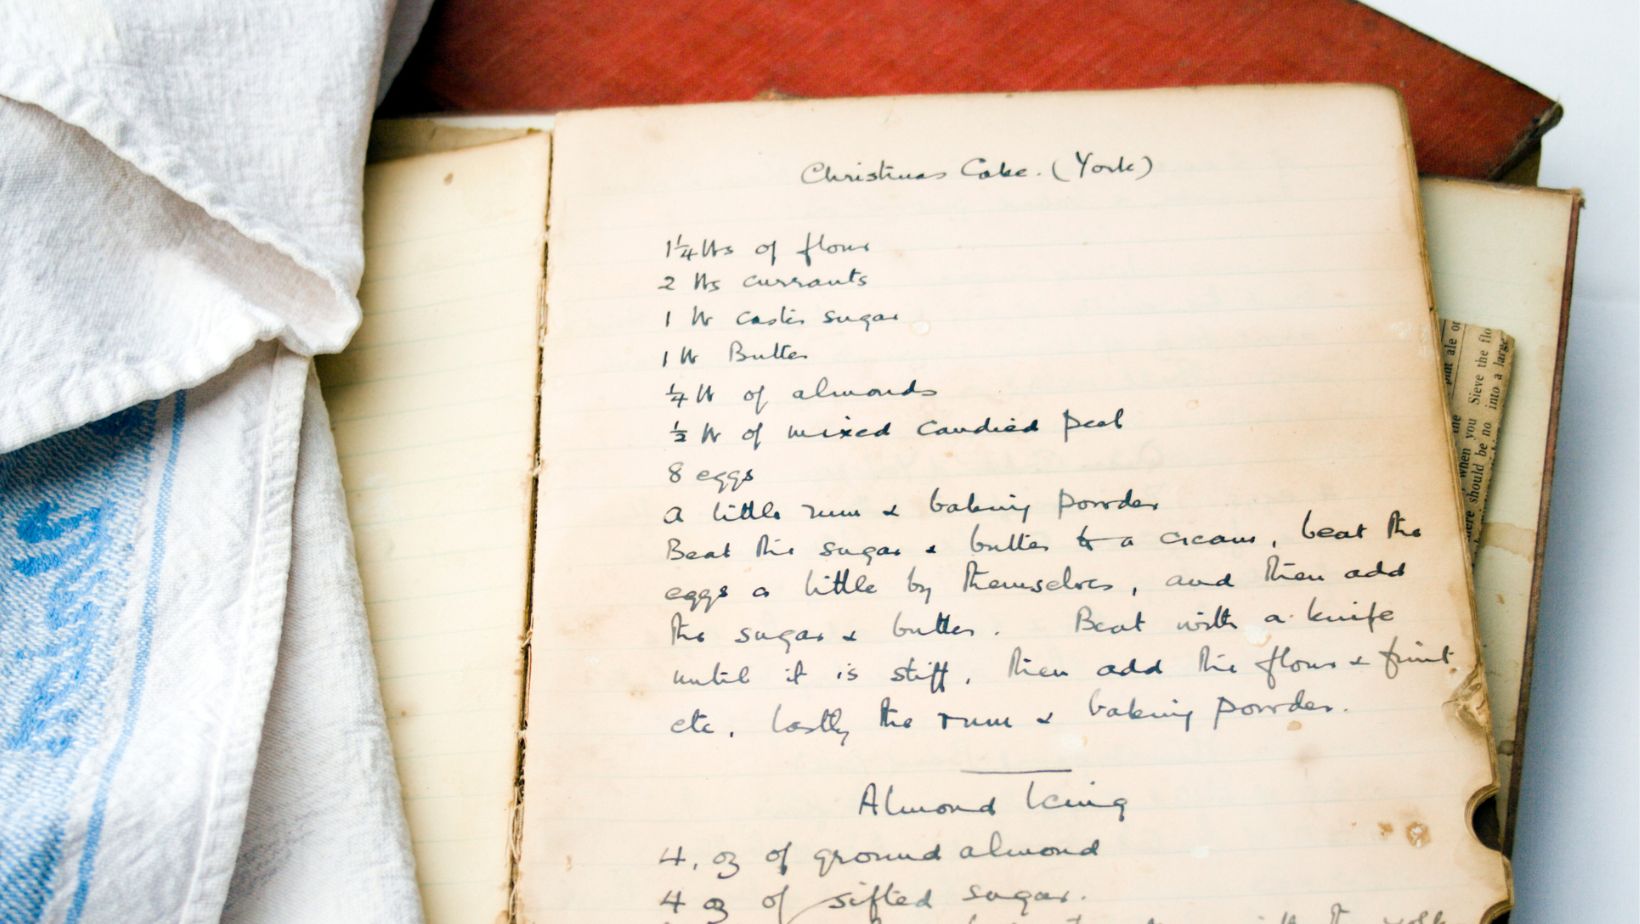 Christmas Cake. (York)
1¼ lbs of flour
2 lbs currants
1 lb caster sugar
1 lb Butter
¼ lb of almonds
½ lb of mixed candied peel
8 eggs
a little rum & baking powder
Beat the sugar & butter to a cream, beat the
eggs a little by themselves, and then add
the sugar & butter. Beat with a knife
until it is stiff, then add the flour & fruit
etc, lastly the rum & baking powder.
Almond Icing
4. oz of ground almond
4 oz of sifted sugar.
ale or
when you Sieve the flo
ere should be no into a large